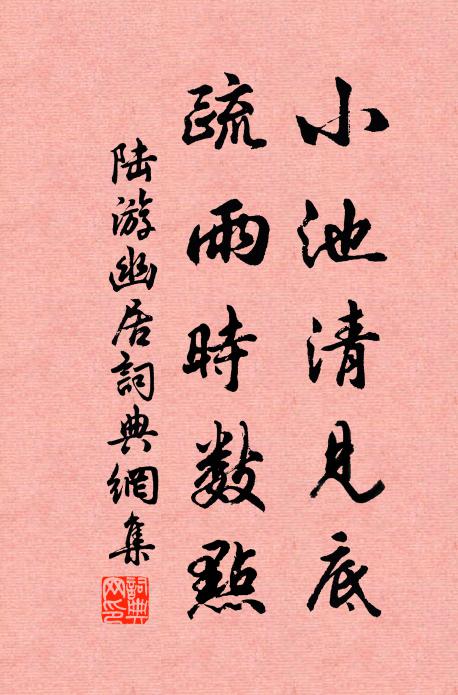 小池清見底
疏雨時數點
陸游幽居詞典網集
詞典網印